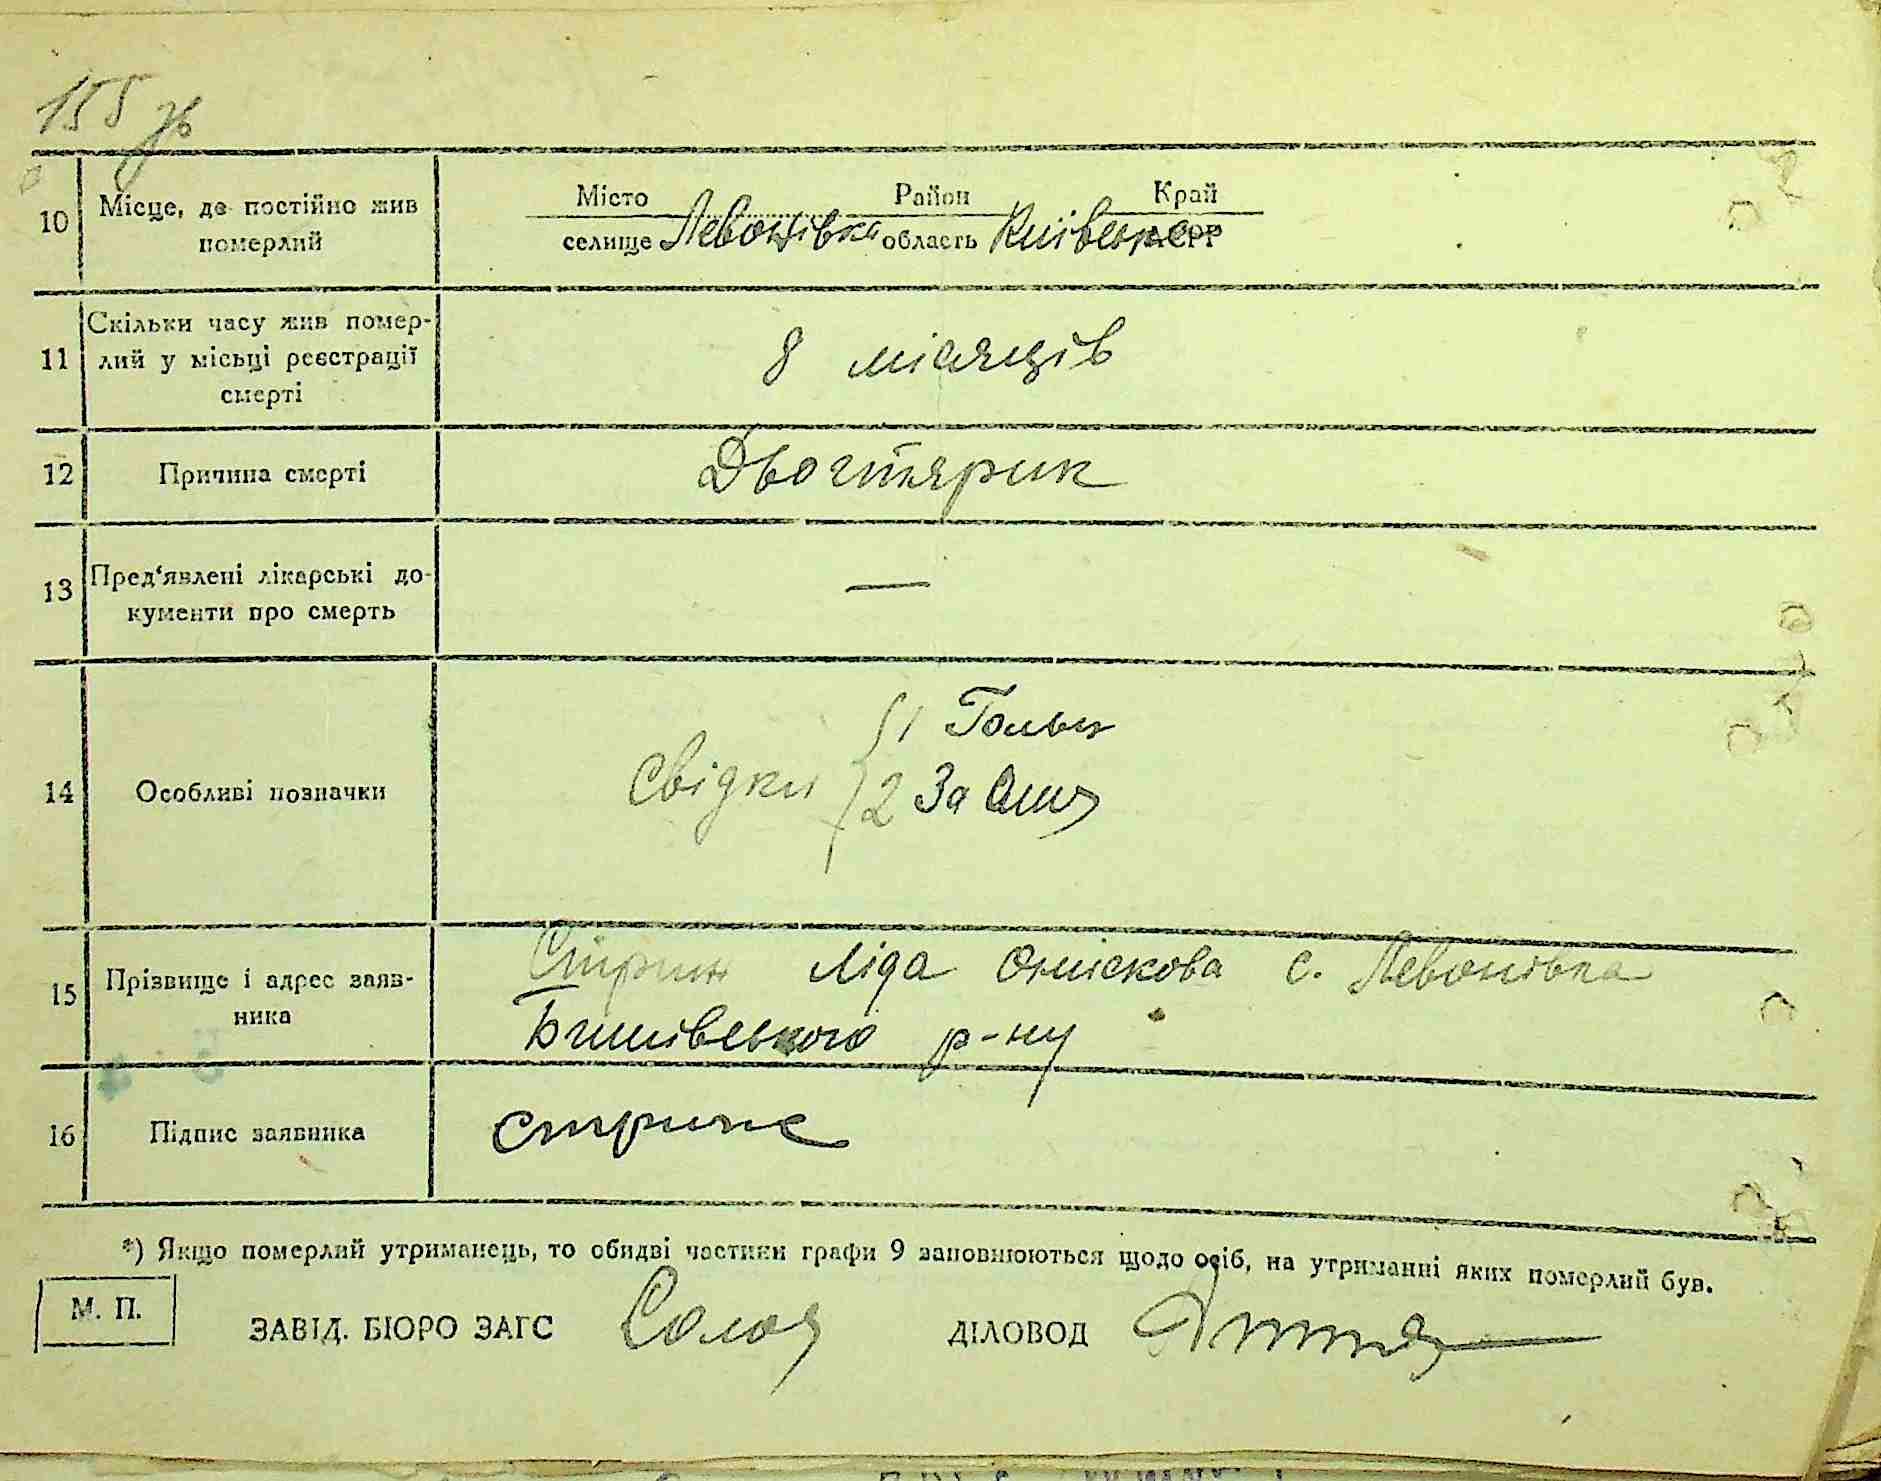 155 зв
10 Місце, де постійно жив померлий
Місто Район Край
селище Левонівка область Київська АСРР
11 Скільки часу жив помер-
лий у місьці реєстрації
смерті
8 місяців
12 Причина смерті Двогтярик
13 Пред‘явлені лікарські до-
кументи про смерть
—
14 Особливі позначки
свідки
1
2 За
15 Прізвище і адрес заяв-
ника
Ліда с. Левонівка
р-ну
16 Підпис заявника
*) Якщо померлий утриманець, то обидві частини графи 9 заповнюються щодо осіб, на утриманні яких померлий був.
М. П.
ЗАВІД. БЮРО ЗАГС ДІЛОВОД